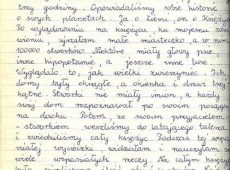 trzy godziny. Opowiadaliśmy sobie historie
o swoich planetach. Ja o Ziemi, on o Księżycu.
Po wylądowaniu na księżycu, ku mojemu zdzi-
wieniu, ujrzałam małe miasteczko, a w nim
100000 stworków. Niektóre miały głowy psie,
inne hipopotamie, a jeszcze inne lwie.
Wyglądało to, jak wielki zwierzyniec. Ich
domy były okrągłe, a okienka i drzwi trój-
kątne. Stworki nie miały imion, a każdy
swój dom rozpoznawał po swoim posągu
na dachu. Potem, ze swoim przyjacielem
- stworkiem weszliśmy do latającego talerza
i zwiedzaliśmy cały księżyc. Podczas tej wspa-
niałej wycieczki widziałam i nauczyłam się
wiele wspaniałych rzeczy. Na całym księżycu